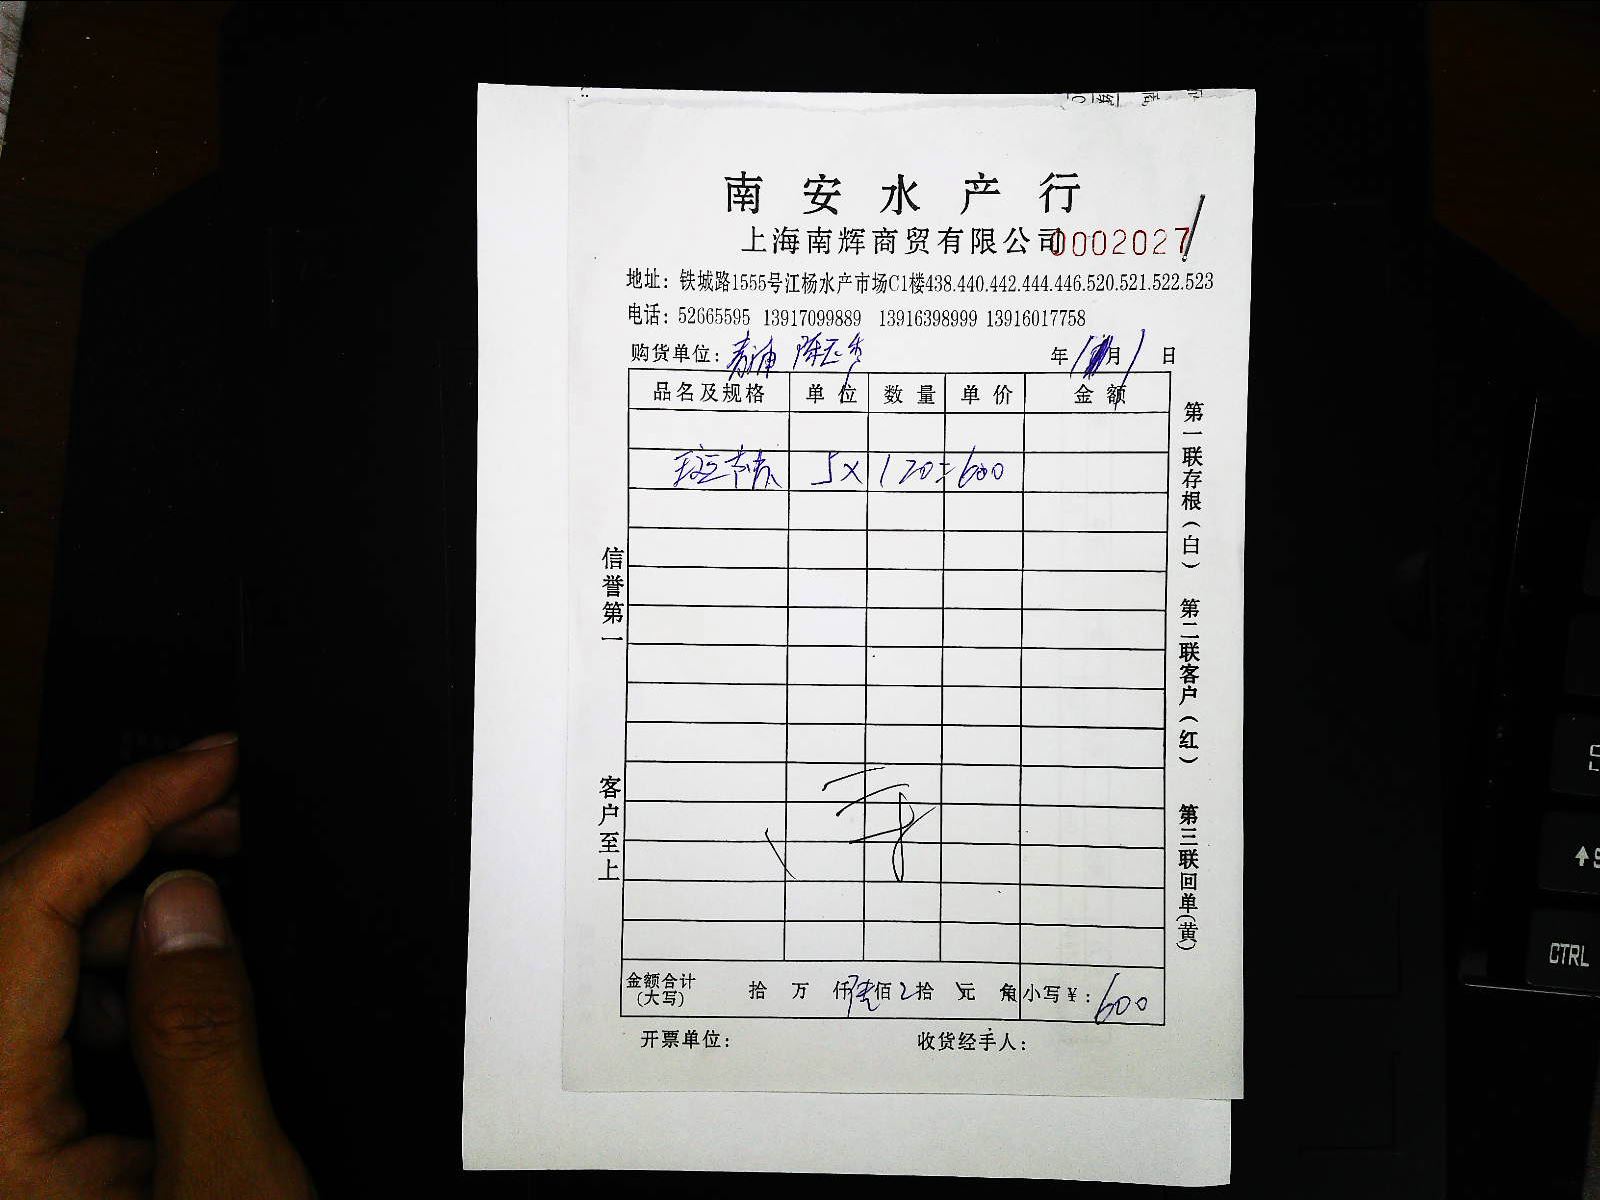 南安水产行
上海南辉商贸有限公司 0002027
地址：铁城路1555号江杨水产市场C1楼438.440.442.444.446.520.521.522.523
电话：52665595 13917099889 13916398999 13916017758
购货单位：青浦 陈 年 月 1 日
品名及规格 单位 数量 单价 金额
斑节 5× 120=600
信誉第一
客户至上
第一联存根(白)
第二联客户(红)
第三联回单(黄)
金额合计(大写) 拾 万 仟 陆 佰 拾 元 角 小写￥: 600
开票单位: 收货经手人:
CTRL